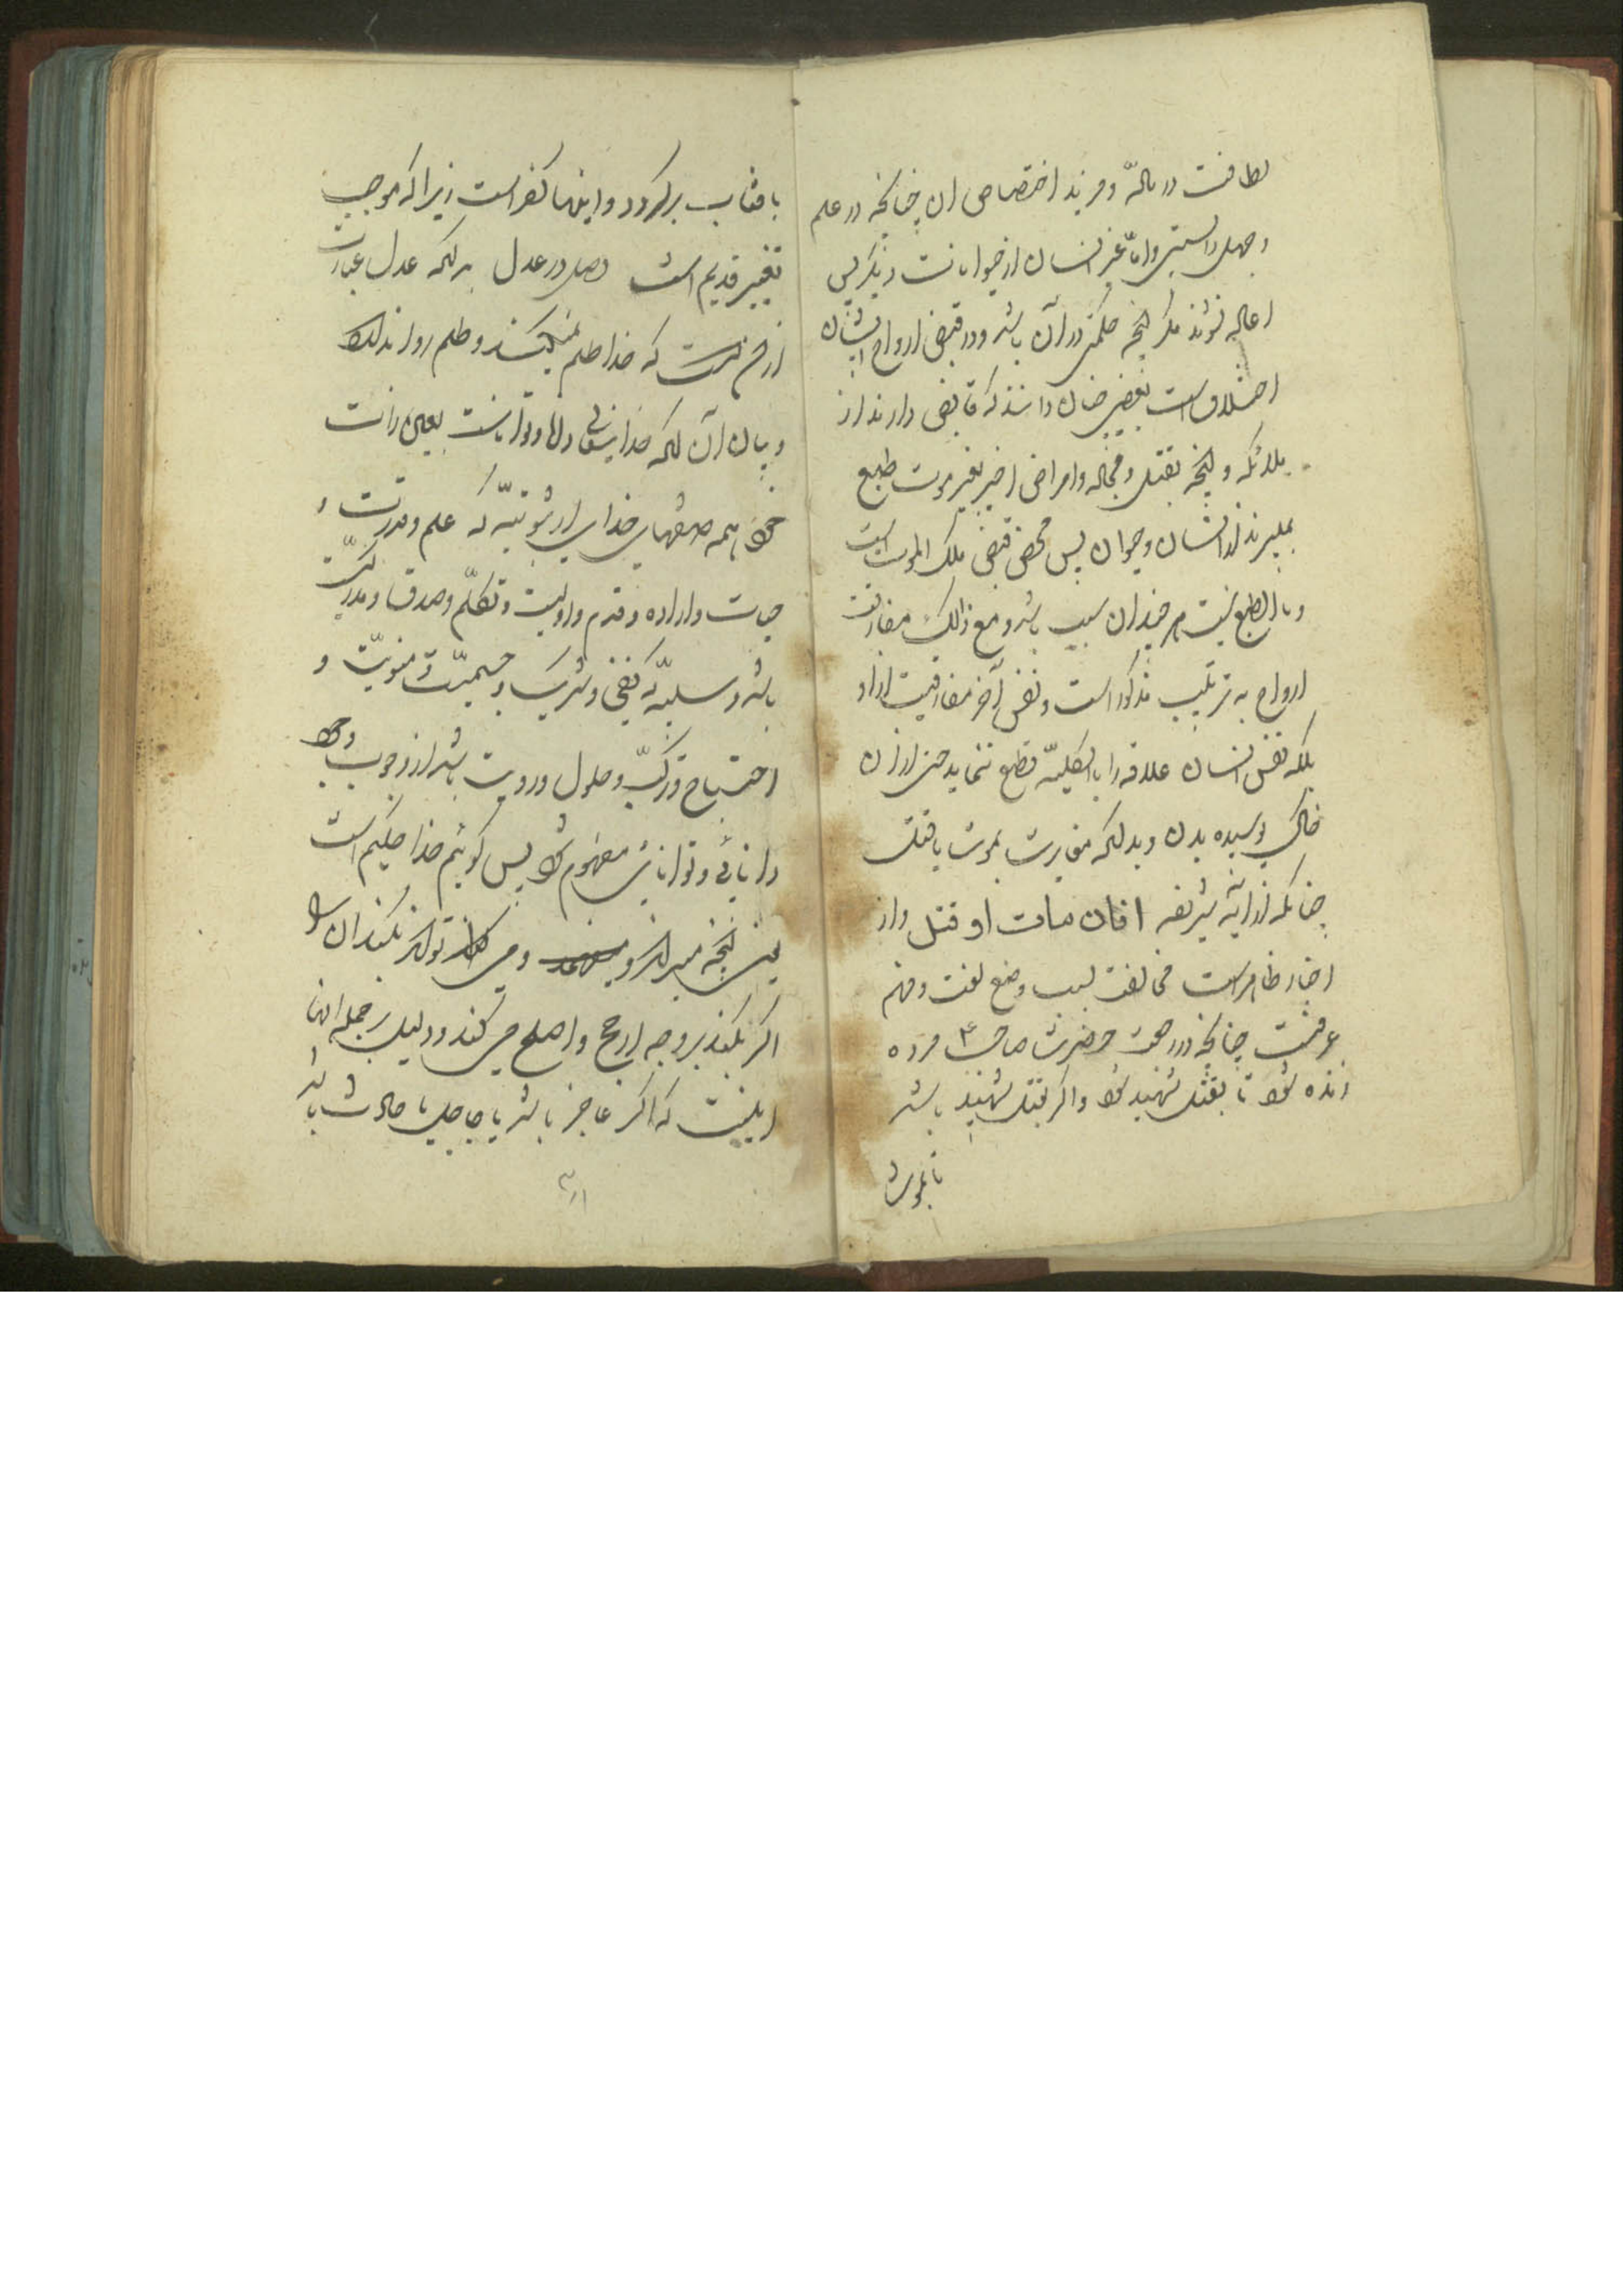 لطافت در تأله و مزید اختصاص ان چنانچه در علم
و جهل دانستی واما غیر انسان از حیوانات دیگر پس
اعاده نشوند مگر انچه حکمتی در آن باشد و در قبض ارواح ایشان
اختلافست بعضی چنان دانند که قابضی دارند از
ملائکه و انچه بقتل و فجأه وامراض اخیر بغیر موت طبع
بمیرند از انسان وحیوان پس محض قبض ملک الموت است
و بالطبع نیست هر چند ان سبب باشد و مع ذالک مفارقت
ارواح به ترتیب مذکور است و نفس آخر مفارقیت از او
بلکه نفس انسان علاقه را بالکلیه قطع ننماید حتی از ان
خاک پوسیده بدن و بدانکه مغایرت بموت یا قتل
چنانکه از آیه شریفه افان مات او قتل واز
اخبار ظاهر است مخالفت لیب وضع لغت وفهم
عرفست چنانچه در رجعت حضرت صاحب ع مرده
زنده شود تا بقتل شهید شود واکر بقتل شهید باشد
تا بموت
بافتاب برکردد و اینها کفر است زیرا که موجب
تغییر قدیم است وصل در عدل بدانکه عدل عبارت
از آن است که خدا ظلم نمیکند و ظلم روا ندارد
و بیان آن انکه خدایتعالی دانا و تواناست یعنی ذات
همه صفتهای خدای از ثبوتیه که علم و قدرت و
حیات و اراده و قدم و ازلیت و تکلم و صدق و مدرکیت
باشد و سلبیه که نفی و شریک و جسمیت و معنویت و
احتیاج و ترکب و حلول و رویت باشد از وجوب وجود
دانائی و توانائی مفهوم شود پس کوئیم خدا حکیم است
یعنی انچه میداند و می کند تواند بکند ان را
اکر بکند بر وجه ارجح و اصلح می کند و دلیل بر جمله انها
اینست که اکر عاجز باشد یا جاهل یا حادث باشد